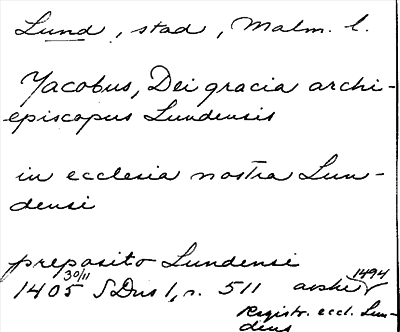 Lund, stad, Malm. l.
Jacobus, Dei gracia archi-
episcopus Lundensis
in ecclesia nostra Lun-
densi
preposito Lundensi
30/11 1494
1405 SDns 1, s. 511 avskr
Registr. eccl. Lun-
dens